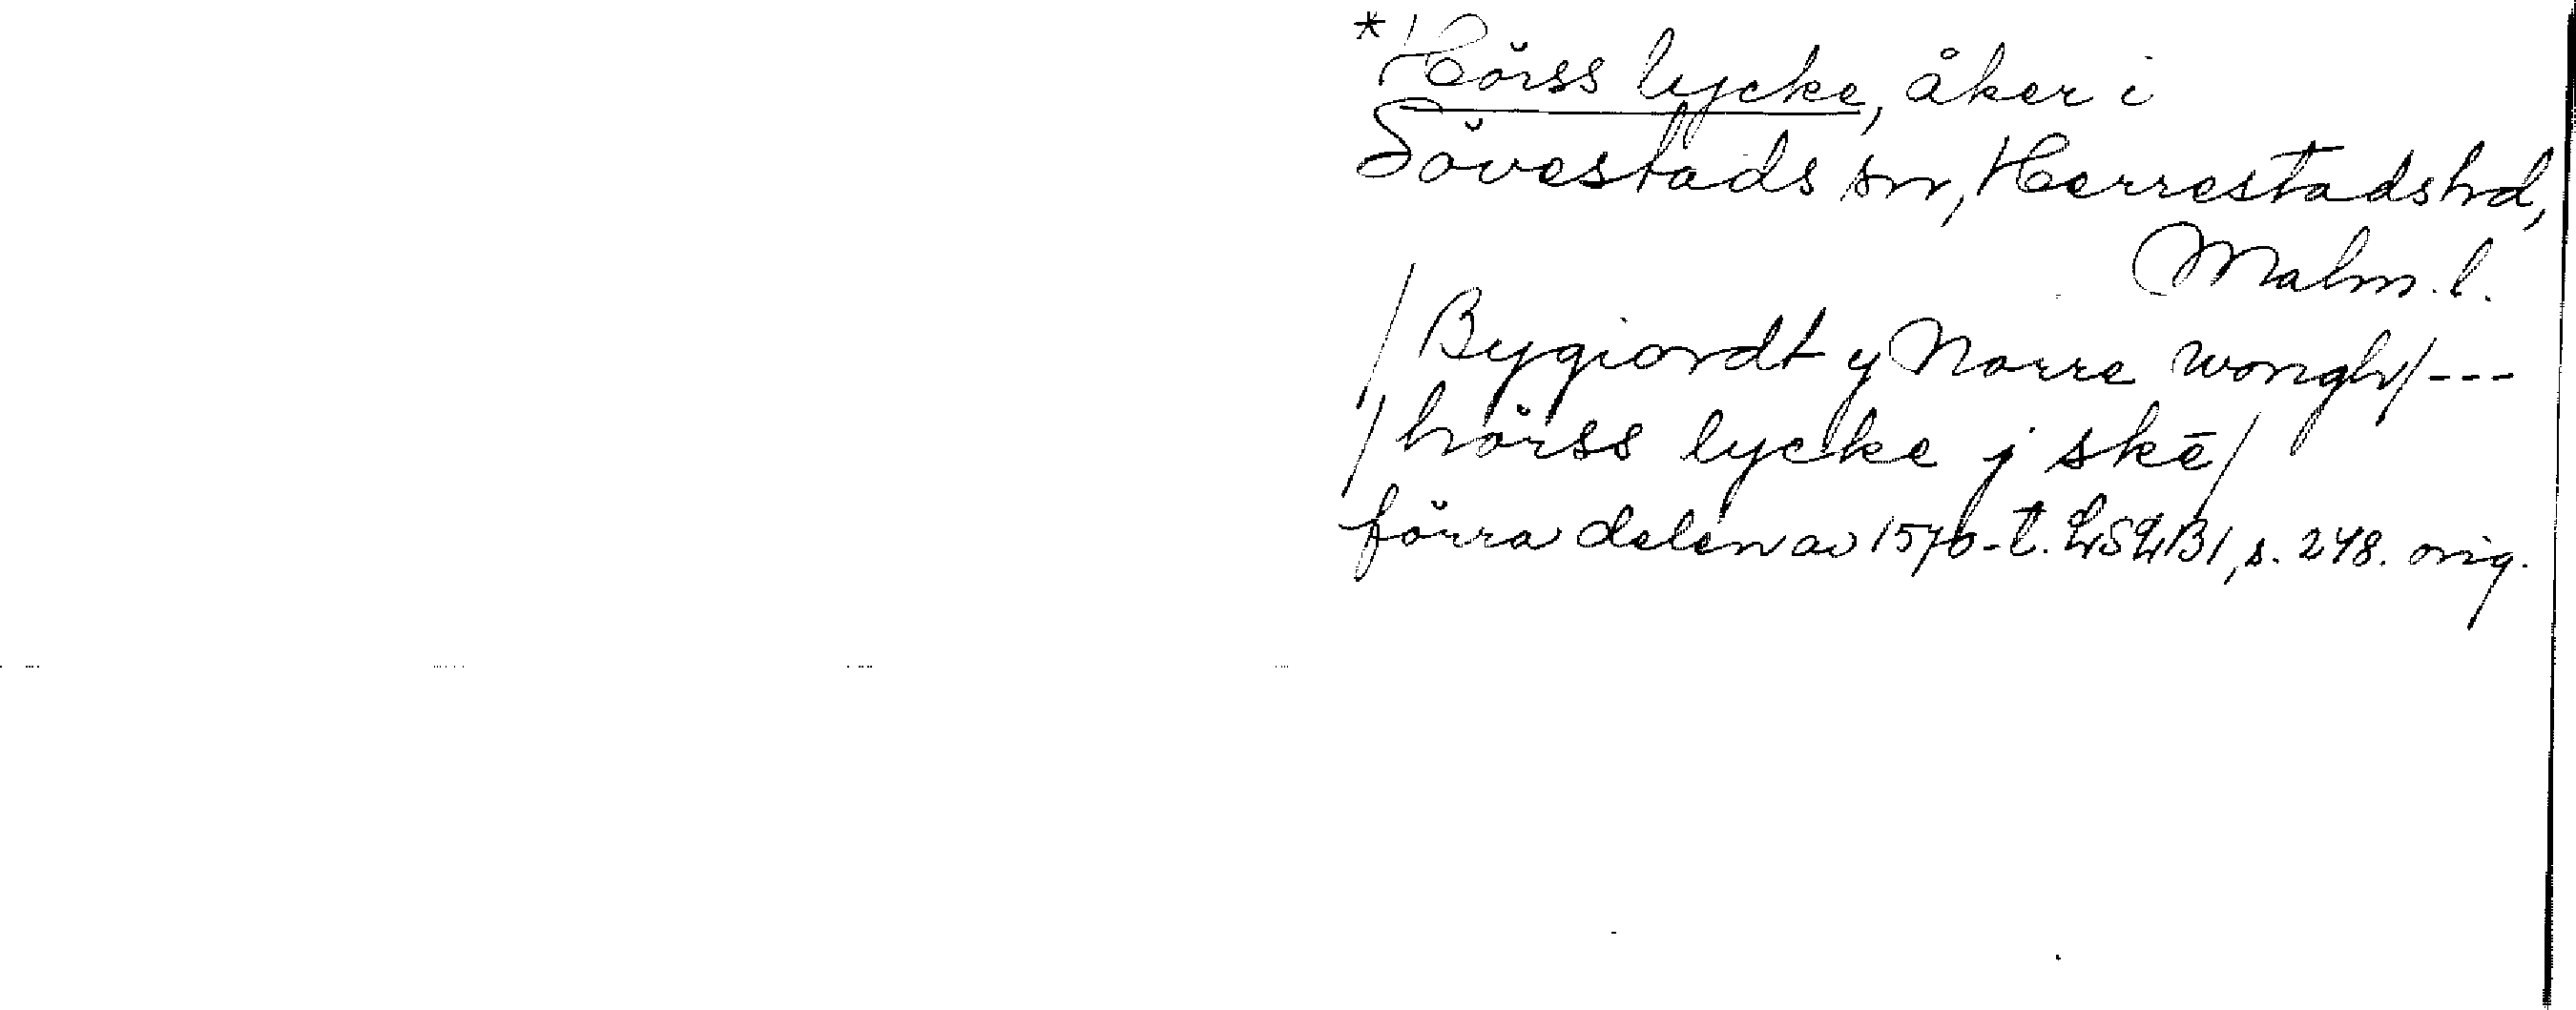 *Hörss lycke, åker i
Sövestads sn, Herrestads hd,
Malm. l.
/Bygiordt y Norre wongh/---
/hörss lycke j skē/
förra delen av 1570-t. LSLB1, s. 248. orig.